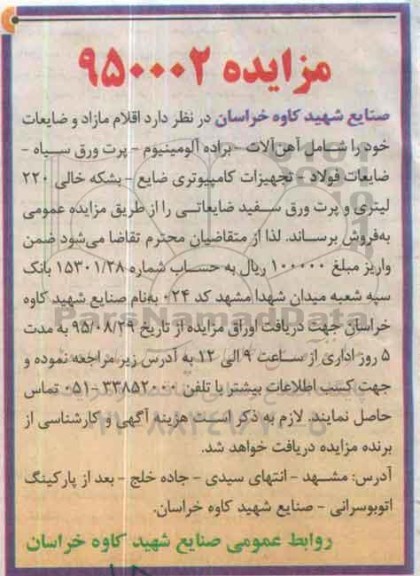 مزایده ۹۵۰۰۰۲
صنایع شهید کاوه خراسان در نظر دارد اقلام مازاد و ضایعات
خود را شامل آهن‌آلات - براده آلومینیوم - پرت ورق سیاه -
ضایعات فولاد - تجهیزات کامپیوتری ضایع - بشکه خالی ۲۲۰
لیتری و پرت ورق سفید ضایعاتی را از طریق مزایده عمومی
به‌فروش برساند. لذا از متقاضیان محترم تقاضا می‌شود ضمن
واریز مبلغ ۱۰۰۰۰۰ ریال به حساب شماره ۱۵۳۰۱/۳۸ بانک
سپه شعبه میدان شهدا مشهد کد ۰۲۴ به‌نام صنایع شهید کاوه
خراسان جهت دریافت اوراق مزایده از تاریخ ۹۵/۰۸/۲۹ به مدت
۵ روز اداری از ساعت ۹ الی ۱۲ به آدرس زیر مراجعه نموده و
جهت کسب اطلاعات بیشتر با تلفن ۳۳۸۵۲۰۰۰-۰۵۱ تماس
حاصل نمایند. لازم به ذکر است هزینه آگهی و کارشناسی از
برنده مزایده دریافت خواهد شد.
آدرس: مشهد - انتهای سیدی - جاده خلج - بعد از پارکینگ
اتوبوسرانی - صنایع شهید کاوه خراسان.
روابط عمومی صنایع شهید کاوه خراسان
ParsNamadData